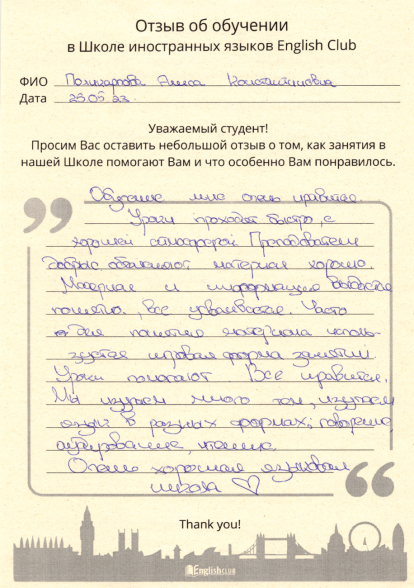 Отзыв об обучении
в Школе иностранных языков English Club
ФИО Поликарпова Алиса Константиновна
Дата 25.05.23
Уважаемый студент!
Просим Вас оставить небольшой отзыв о том, как занятия в
нашей Школе помогают Вам и что особенно Вам понравилось.
Обучение мне очень нравится.
Уроки проходят быстро, с
хорошей атмосферой. Преподаватели
добрые, объясняют материал хорошо.
Материал и информация
понятно, все усваивается. Часто
для понятия материала исполь-
зуется игровая форма занятий.
Уроки помогают. Все нравится.
Мы изучаем много тем, изучаем
язык в разных формах: говорение
аудирование, чтение.
Очень хорошая языковая
школа ♡
Thank you!
EnglishCLUB